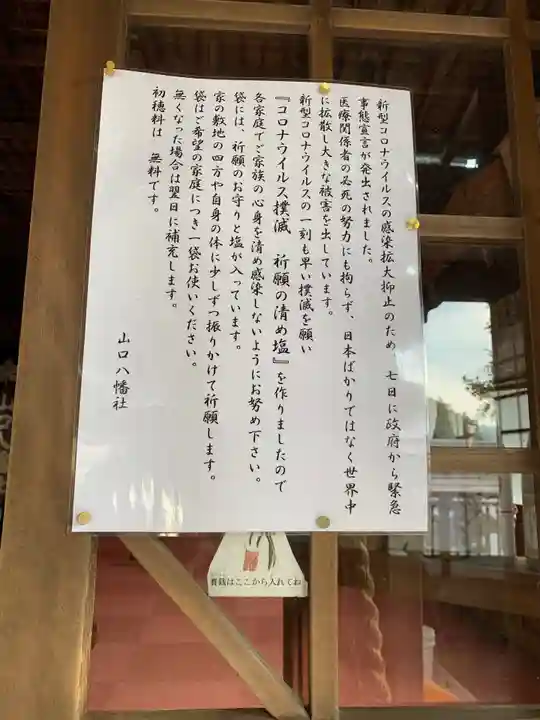 新型コロナウイルスの感染拡大抑止のため 七日に政府から緊急
事態宣言が発出されました。
医療関係者の必死の努力にも拘らず、日本ばかりではなく世界中
に拡散し大きな被害を出しています。
新型コロナウイルスの一刻も早い撲滅を願い
『コロナウイルス撲滅 祈願の清め塩』を作りましたので
各家庭でご家族の心身を清め感染しないようにお努め下さい。
袋には、祈願のお守りと塩が入っています。
家の敷地の四方や自身の体に少しずつ振りかけて祈願します。
袋はご希望の家庭につき一袋お使いください。
無くなった場合は翌日に補充します。
初穂料は 無料です。
山口八幡社
賽銭はここから入れてね